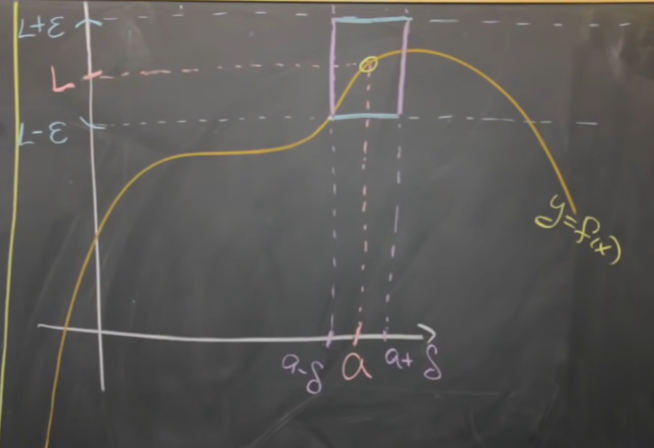 L+ε
L
L-ε
y=f(x)
a-δ a a+δ